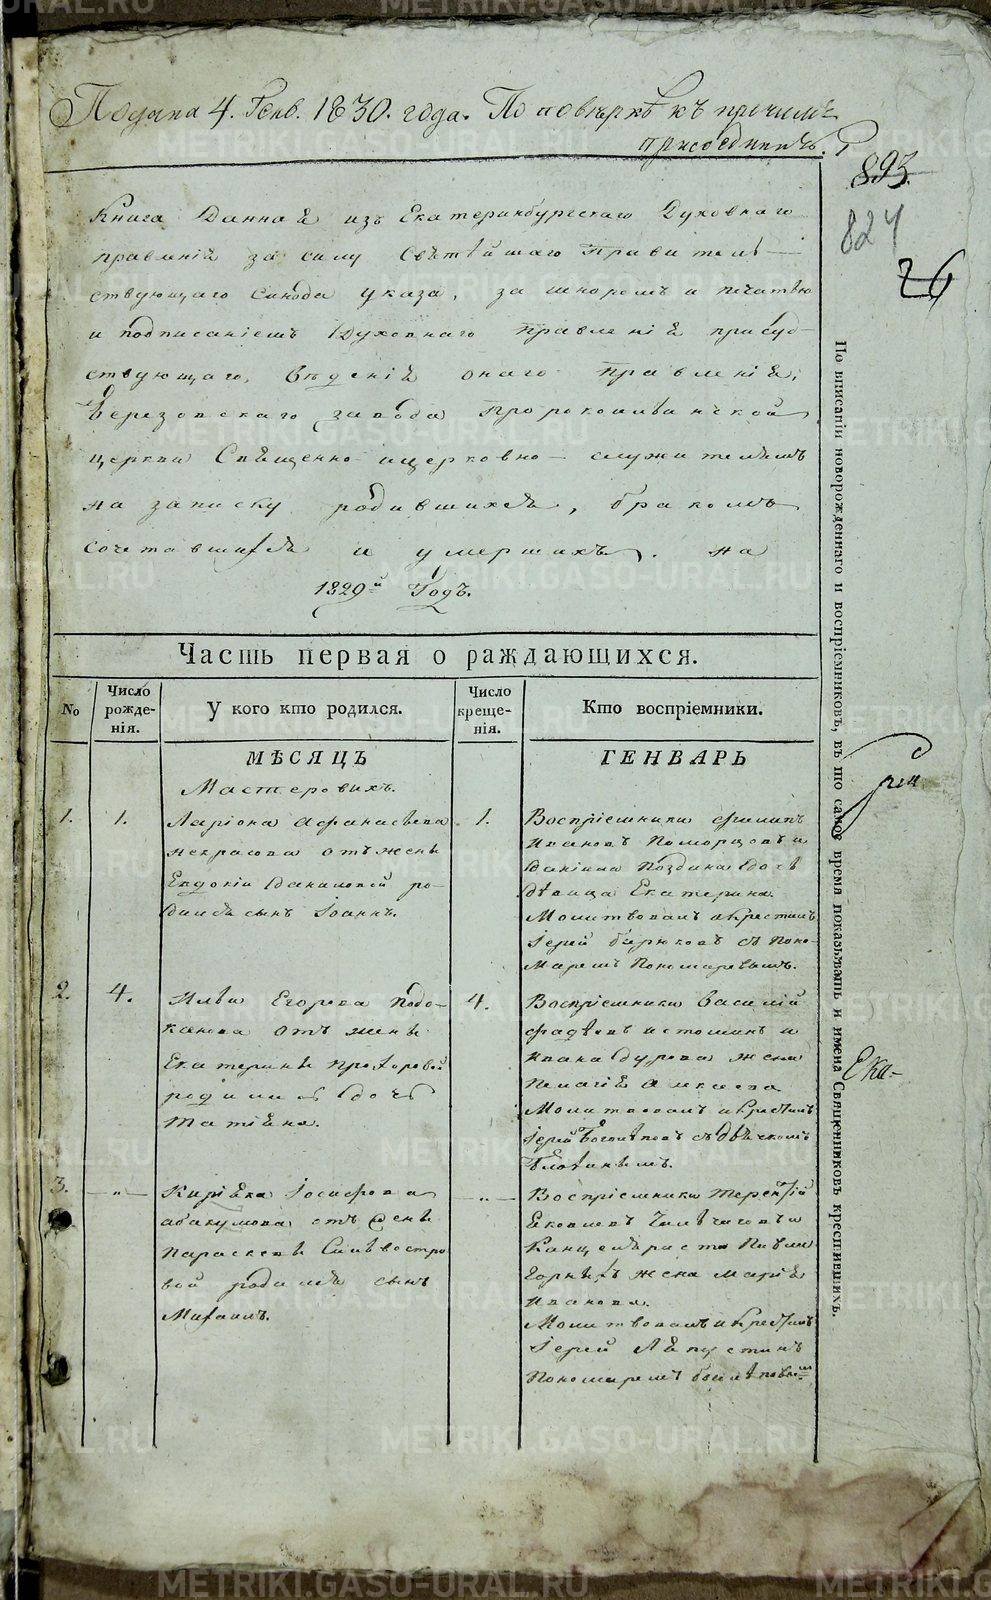 Подана 4. Генв. 1830. года. По поверкѣ къ прочимъ
присоединить.
893.
824
26
Книга Данная изъ Екатеринбургскаго Духовнаго
правленія за силу Святѣйшаго Правитель-
ствующаго Синода указа, за шнуромъ и печатью
и подписаніемъ Духовнаго правленія присуд-
ствующаго, вѣденія онаго правленія,
Березовскаго завода Пророкоильинской
церкви Священно-ицерковно-служителямъ
на записку родившихся, бракомъ
сочетавшихся и умершихъ. на
1829й Годъ.
Часть первая о раждающихся.
No
Число рожде-нія.
У кого кто родился.
Число креще-нія.
Кто воспріемники.
МѢСЯЦЪ ГЕНВАРЬ
Мастеровихъ.
1. 1. Ларіона Афанасьева
некрасова отъ жены
Евдокіи Даниловой ро-
дился сынъ Іоаннъ.
1. Воспріемники Филипъ
Ивановъ Поморцовъ и
Даніила Поздина дочь
дѣвица Екатерина.
Молитвовалъ икрестилъ
Іерей Бирюковъ съ Поно-
маремъ Пономаревымъ.
2. 4. Ильи Егорова
отъ жены
Екатерины Прохоровой
родилась дочь
Татіяна.
4. Воспріемники Василій
Фадѣевъ истоминъ и
Ивана Дурова жена
Пелагія
Молитвовалъ икрестилъ
Іерей съ дьячкомъ
3. -„- Кирілла Іосифова
абакумова отъ жены
Параскевы Сильвестро
вой родился сынъ
Михаилъ.
-„- Воспріемники Терентій
Яковлевъ и
Канцеляриста Павла
Горныхъ жена Марія
Иванова.
Молитвовалъ икрестилъ
Іерей Ляпустинъ
Пономаремъ
По вписаніи новорожденнаго и воспріемниковъ, въ то самое время показывать и имена Священниковъ крестившихъ.
Ека-